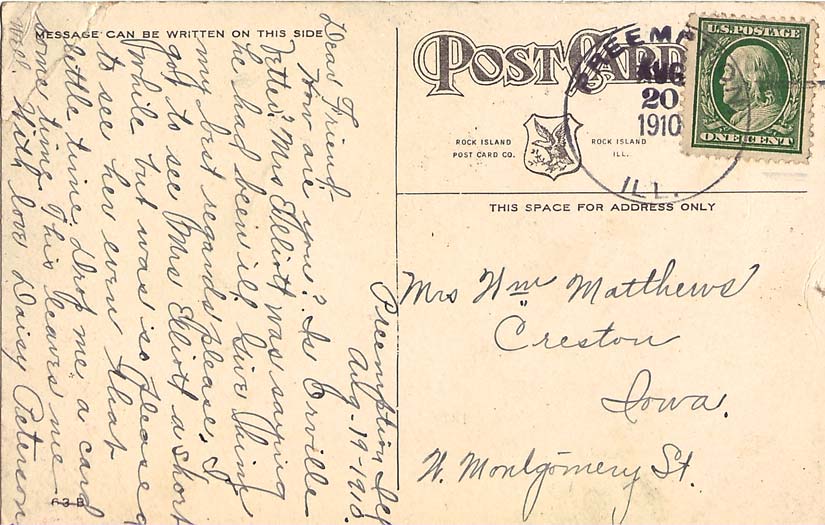 MESSAGE CAN BE WRITTEN ON THIS SIDE
Preemption Ill
Aug-19-1910.
Dear Friend-
How are you? Is Orville
better? Mrs Elliott was saying
he had been ill. Give him
my best regards please. I
got to see Mrs Elliott a short
while but was so pleased
to see her even that
little time. Drop me a card
some time. This leaves me
well. With love Daisy Peterson.
63-B
POST CARD
ROCK ISLAND
POST CARD CO.
ROCK ISLAND
ILL.
PREEMPTION
AUG
20
1910
ILL.
U.S. POSTAGE
ONE CENT
THIS SPACE FOR ADDRESS ONLY
Mrs Wm Matthews
Creston
Iowa.
W. Montgomery St.